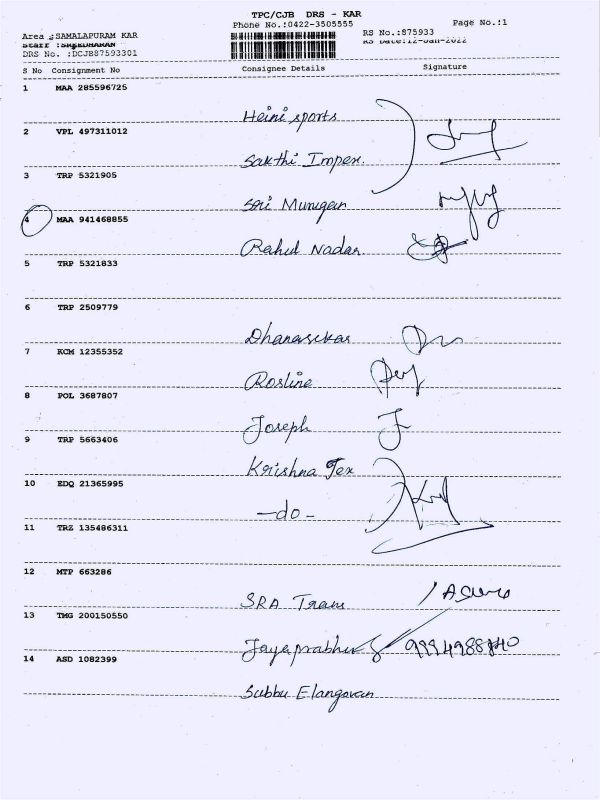 TPC/CJB DRS - KAR
Phone No.:0422-3505555 Page No.:1
Area :SAMALAPURAM KAR RS No.:875933
Staff :SHREEDHARAN RS Date:12-Jan-2022
DRS No. :DCJB87593301
S No Consignment No Consignee Details Signature
1 MAA 285596725
Heini sports
2 VPL 497311012
Sakthi Impex.
3 TRP 5321905
Sri Murugan
4 MAA 941468855
Rahul Nadar
5 TRP 5321833
6 TRP 2509779
Dhanasekar
7 KCM 12355352
Rosline
8 POL 3687807
Joseph J
9 TRP 5663406
Krishna Tex
10 EDQ 21365995
-do-
11 TRZ 135486311
12 MTP 663286
SRA Trans
13 TMG 200150550
Jayaprabhu
14 ASD 1082399
Subbu Elangovan